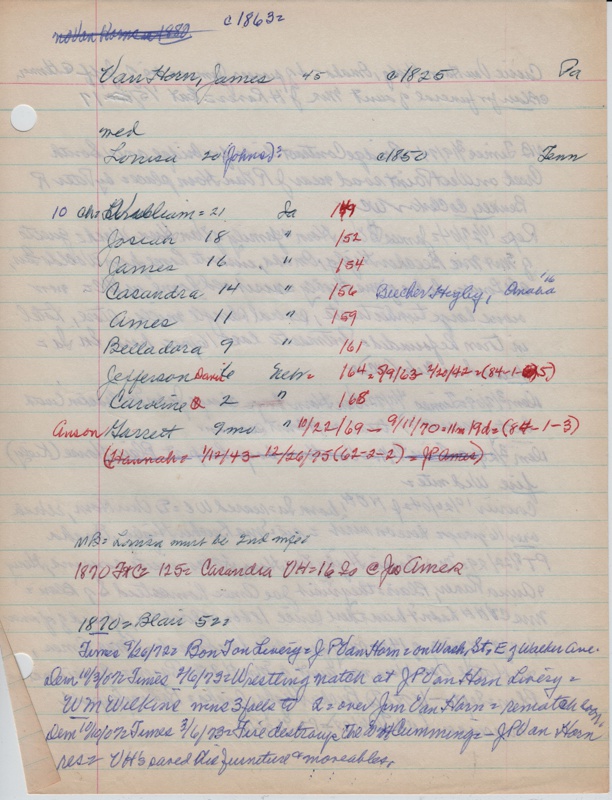 c1863=
no Van Horne in 1880
Van Horn, James 45 c1825 Pa
med
Louisa 20 (Johns)? c1850 Tenn
10 ch= William = 21 Ia 149
Josiah 18 " 152
James 16 " 154
Casandra 14 " 156 Beecher Higby, Omaha '16
Ames 11 " 159
Belladora 9 " 161
Jefferson Daniel 6 Nebr= 164 = 5/9/63 2/20/42 = (84-1-5)
Caroline 2 " 168
Anson Garrett 9mo " 10/22/69 - 9/11/70 = 11m 19d = (84-1-3)
(Hannah = 1/12/43 - 12/26/75 (62-2-2) = JP Ames)
NB = Louisa must be 2nd mged
1870 FtC = 125 = Casandra VH = 16 Ia @ Jos Ames
1870 = Blair 522
Times 9/26/72 = Bon Ton Livery = J P Van Horn = on Wash. St, E of Walker Ave.
Dem 10/3/07 = Times 2/6/73 = Wrestling match at J P Van Horn Livery =
WM Wilkins wins 3 falls to 2 = over Jim Van Horn = rematch
Dem 10/10/07 = Times 3/6/73 = Fire destroys the Cummings - J P Van Horn
res = VH's saved the furniture & moveables,